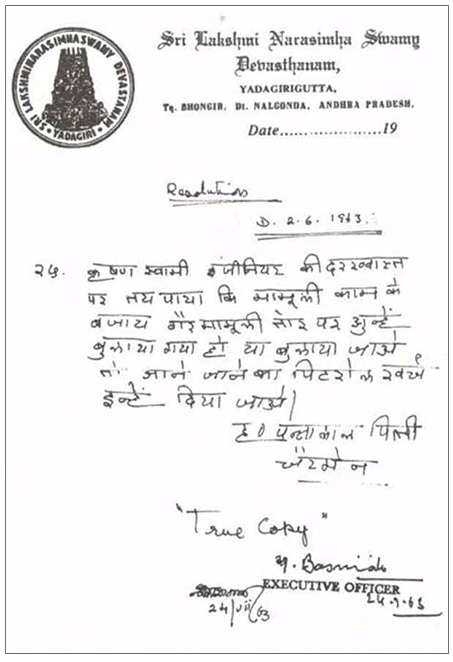 SRI LAKSHMINARASIMHA SWAMY DEVASTANAM
YADAGIRI
Sri Lakshmi Narasimha Swamy
Devasthanam,
YADAGIRIGUTTA,
Tq. BHONGIR, Dt. NALGONDA, ANDHRA PRADESH.
Date......................19
Resolution
D. 2.6. 1963.
२५. कृष्ण स्वामी इंजीनियर की दरख्वास्त
पर तय पाया कि मामूली काम के
बजाय गैरमामूली तौर पर अुन्हें
बुलाया गया हो या बुलाया जाअे
तो आने जाने का पिटरोल खर्च
इन्हें दिया जाअे।
ह० पन्नालाल पित्ती
चैरमेन
"True Copy"
EXECUTIVE OFFICER
24/VII/63
24.7.63